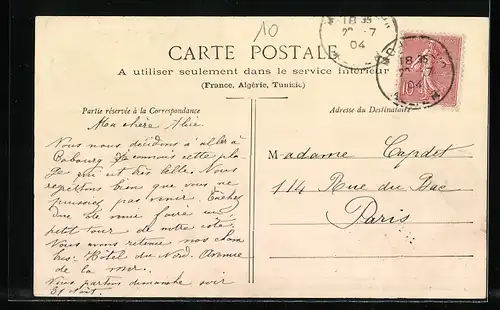 10
18 35
7
04
CARTE POSTALE
18 35
7
10
04
A utiliser seulement dans le service intérieur
(France, Algérie, Tunisie)
Partie réservée à la Correspondance
Adresse du Destinataire
Ma chère Alice.
Nous nous décidons à aller à
Cabourg. Je connais cette pla-
ge qui est très belle. Nous
regrettons bien que vous ne
puissiez pas venir. Tachez
donc de venir faire un
petit tour de notre côté.
Nous avons retenu nos cham
bres: Hôtel du Nord. Avenue
de la mer.
Nous partons dimanche soir
31 août.
Madame Capdet
114 Rue du Bac
Paris